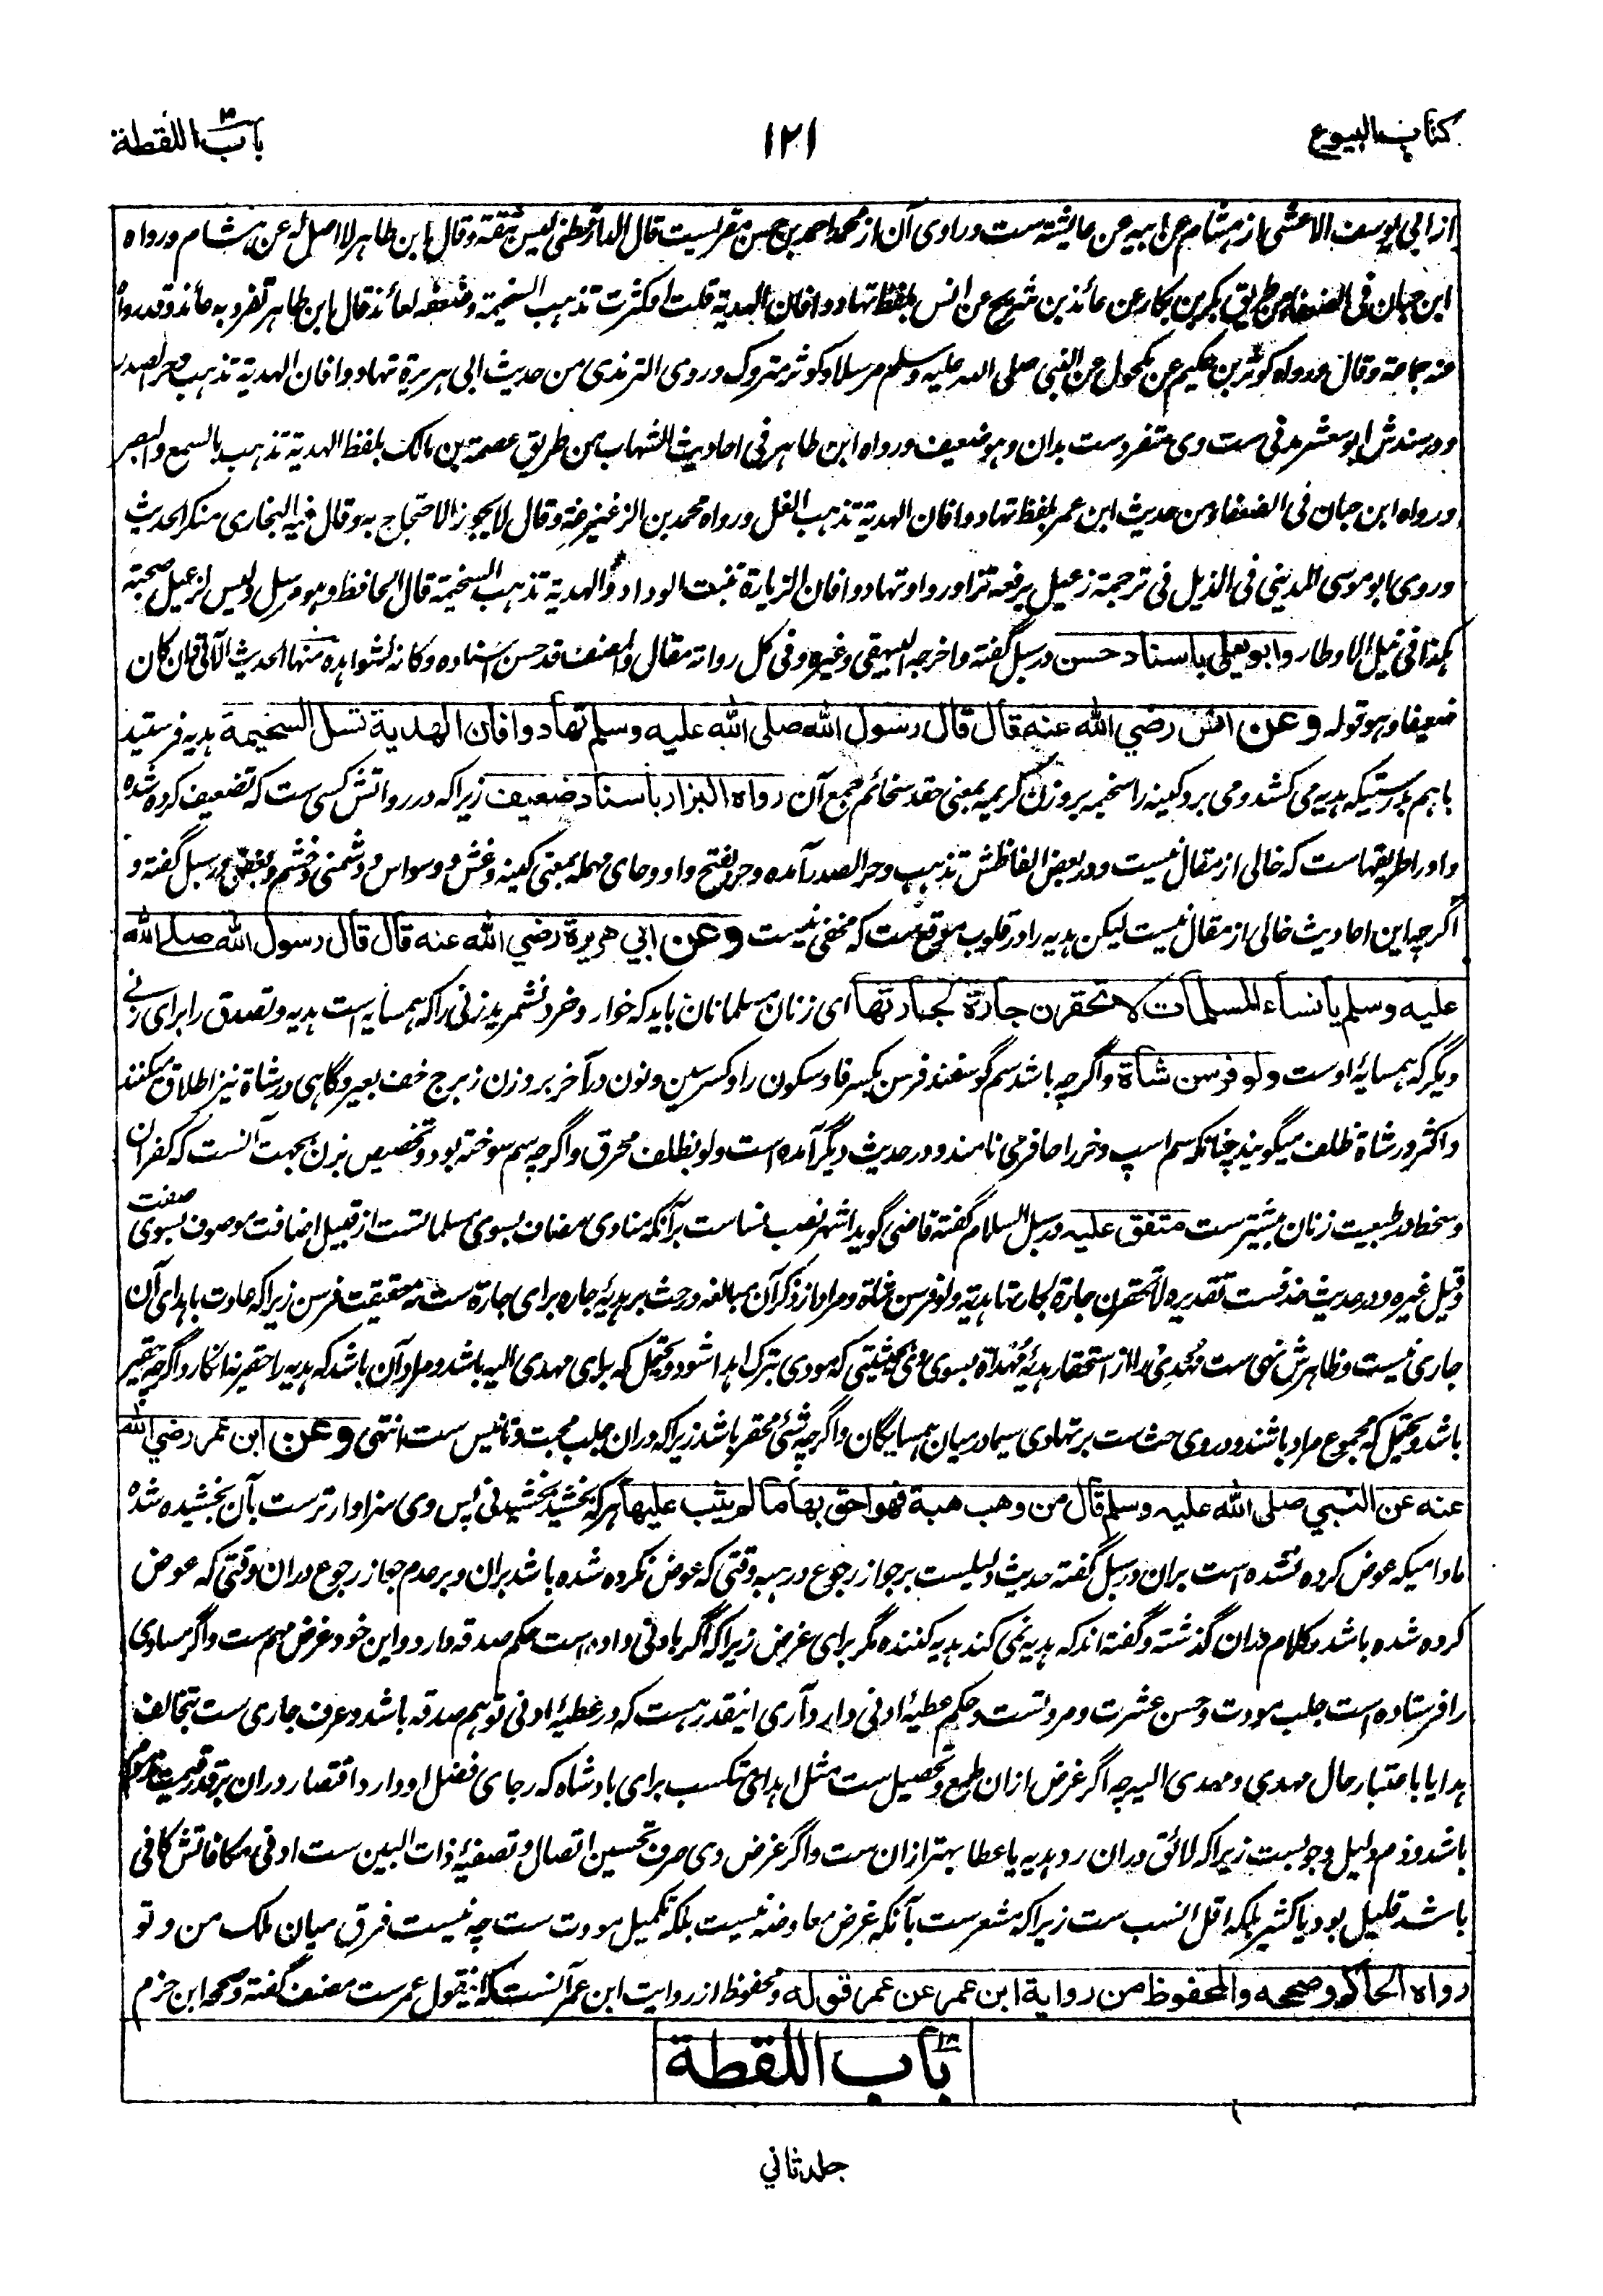 کتاب البیوع
۱۲۱
باب اللقطة
از ابی یوسف الاعشی از هشام عن ابیه عن عایشه ست و راوی آن از محمد احمد بن حسن مقریست قال الدارقطنی لیس بثقة و قال ابن طاهر لا اصل له عن هشام و رواه
ابن حبان فی الضعفاء من طریق بکر بن بکار عن عائذ بن شریح عن انس بلفظ تهادوا فان الهدیة قلت او کثرت تذهب السخیمة و ضعفه لعائذ قال ابن طاهر تفرد به عائذ و قد رواه
عنه جماعة و قال و رواه کوثر بن حکیم عن مکحول عن النبی صلی الله علیه وسلم مرسلا و کوثر متروک و روی الترمذی من حدیث ابی هریرة تهادوا فان الهدیة تذهب وحر الصدر
و در سندش ابو معشر مدنی ست و وی متفرد ست بدان و هو ضعیف و رواه ابن طاهر فی احادیث الشهاب من طریق عصمة بن مالک بلفظ الهدیة تذهب بالسمع والبصر
و رواه ابن حبان فی الضعفاء من حدیث ابن عمر بلفظ تهادوا فان الهدیة تذهب الغل و رواه محمد بن الزعیزعة و قال لا یجوز الاحتجاج به و قال فیه البخاری منکر الحدیث
و روی ابو موسی المدینی فی الذیل فی ترجمة زعبل یرفعه تزاوروا و تهادوا فان الزیارة تنبت الوداد و الهدیة تذهب السخیمة قال الحافظ و هو مرسل و لیس لزعبل صحبة
هکذا فی نیل الاوطار و ابو یعلی باسناد حسن در سبل گفته و اخرجه البیهقی و غیره و فی کل رواته مقال و المصنف قد حسن اسناده و کانه لشواهده منها الحدیث الآتی و ان کان
ضعیفا و هو قوله و عن انس رضی الله عنه قال قال رسول الله صلی الله علیه وسلم تهادوا فان الهدیة تسل السخیمة هدیه فرستید
با هم بدرستیکه هدیه می کشد و می برد کینه را سخیمه بر وزن کریمه بمعنی حقد سخائم جمع آن رواه البزار باسناد ضعیف زیرا که در رواتش کسی ست که تضعیف کرده شده
و او را طریقهاست که خالی از مقال نیست و در بعض الفاظش تذهب وحر الصدر آمده وحر بفتح واو و حای مهمله بمعنی کینه و غش و وسواس و دشمنی و خشم و بغض در سبل گفته و
اگرچه این احادیث خالی از مقال نیست لیکن هدیه را در قلوب موقع ست که مخفی نیست و عن ابی هریرة رضی الله عنه قال قال رسول الله صلی الله
علیه وسلم یا نساء المسلمات لا تحقرن جارة لجارتها ای زنان مسلمانان باید که خوار و خرد نشمرد زنی را که همسایه است هدیه و تصدق را برای زنی
دیگر که همسایهٔ اوست ولو فرسن شاة و اگرچه باشد سم گوسفند فرسن بکسر فا و سکون را و کسر سین و نون در آخر بر وزن زبرج خف بعیر و گاهی در شاة نیز اطلاق میکنند
و اکثر در شاة ظلف میگویند چنانکه سم اسپ و خر را حافر می نامند و در حدیث دیگر آمده است ولو بظلف محرق و اگرچه سم سوخته بود و تخصیص بزن بجهت آنست که کفران
و سخط در طبیعت زنان بیشتر ست متفق علیه در سبل السلام گفته قاضی گوید اشهر نصب نساست بر آنکه منادی مضاف بسوی مسلماتست از قبیل اضافت موصوف بسوی صفت
و قیل غیره و در حدیث حذفست تقدیره لا تحقرن جارة لجارتها هدیة ولو فرسن شاة و مراد از ذکر آن مبالغه در حث بر هدیهٔ جاره برای جارة ست نه حقیقت فرسن زیرا که عادت باهدای آن
جاری نیست و ظاهرش نهی ست مهدی را از استحقار هدیهٔ مهداة بسوی وی بحیثیتی که مودی بترک اهدا شود و محتمل که برای مهدی الیه باشد و مراد آن باشد که هدیه را حقیر نه انگارد اگرچه حقیر
باشد و محتمل که مجموع مراد باشند و در وی حث ست بر تهادی سیما در میان همسایگان و اگرچه شئ محقر باشد زیرا که دران جلب محبت و تانیس ست انتهی و عن ابن عمر رضی الله
عنه عن النبی صلی الله علیه وسلم قال من وهب هبة فهو احق بها ما لم یثب علیها هر که بخشید بخشیدنی پس وی سزاوارتر ست بآن بخشیده شده
مادامیکه عوض کرده نشده است بران در سبل گفته حدیث دلیلست بر جواز رجوع در هبه وقتی که عوض نکرده شده باشد بران و بر عدم جواز رجوع دران وقتی که عوض
کرده شده باشد و کلام دران گذشته و گفته اند که هدیه نمی کند هدیه کننده مگر برای غرض زیرا که اگر بادنی داده است حکم صدقه دارد و این خود غرض مهم ست و اگر مساوی
را فرستاده است جلب مودت و حسن عشرت و مروتست و حکم عطیهٔ ادنی دارد آری اینقدر هست که در عطیهٔ ادنی توهم صدقه باشد و عرف جاری ست بتخالف
هدایا باعتبار حال مهدی و مهدی الیه چه اگر غرض ازان طمع و تحصیل ست مثل اهدای متکسب برای بادشاه که رجای فضل او دارد اقتصار دران بر قدر قیمت مذموم
باشد و ذم دلیل وجوبست زیرا که لائق دران رد هدیه یا عطا بهتر ازان ست و اگر غرض وی صرف تحسین اتصال و تصفیهٔ ذات البین ست ادنی مکافاتش کافی
باشد قلیل بود یا کثیر بلکه اقل انسب ست زیرا که مشعر ست بآنکه غرض معاوضه نیست بلکه تکمیل مودت ست چه نیست فرق میان ملک من و تو
رواه الحاکم و صححه و المحفوظ من روایة ابن عمر عن عمر قوله و محفوظ از روایت ابن عمر آنست که این قول عمر ست مصنف گفته و صححه ابن حزم
باب اللقطة
جلد ثانی